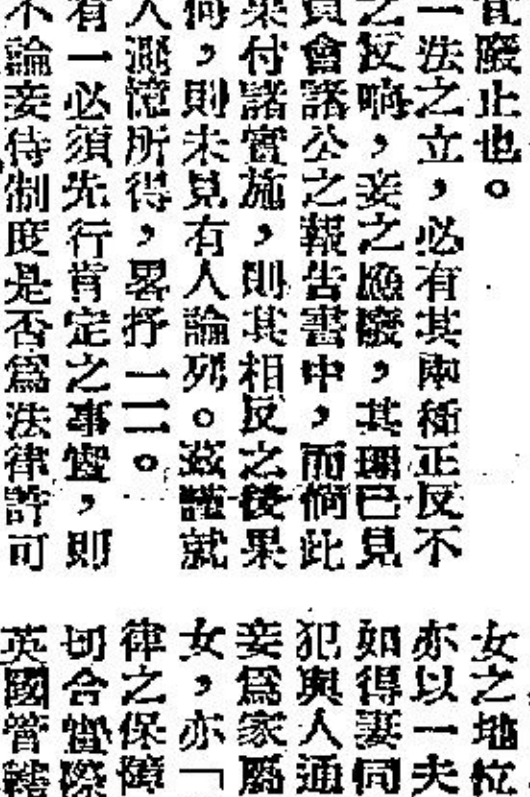 宜廢止也。
一法之立，必有其兩種正反不
之反响，妾之應廢，其理已見
員會諸公之報告書中，而倘此
果付諸實施，則其相反之後果
何，則未見有人論列。茲謹就
人測憶所得，畧抒一二。
有一必須先行肯定之事實，則
不論妾侍制度是否爲法律許可
女之地位
亦以一夫
如得妻同
犯與人通
妾爲家屬
女，亦「
律之保障
切合實際
英國管轄